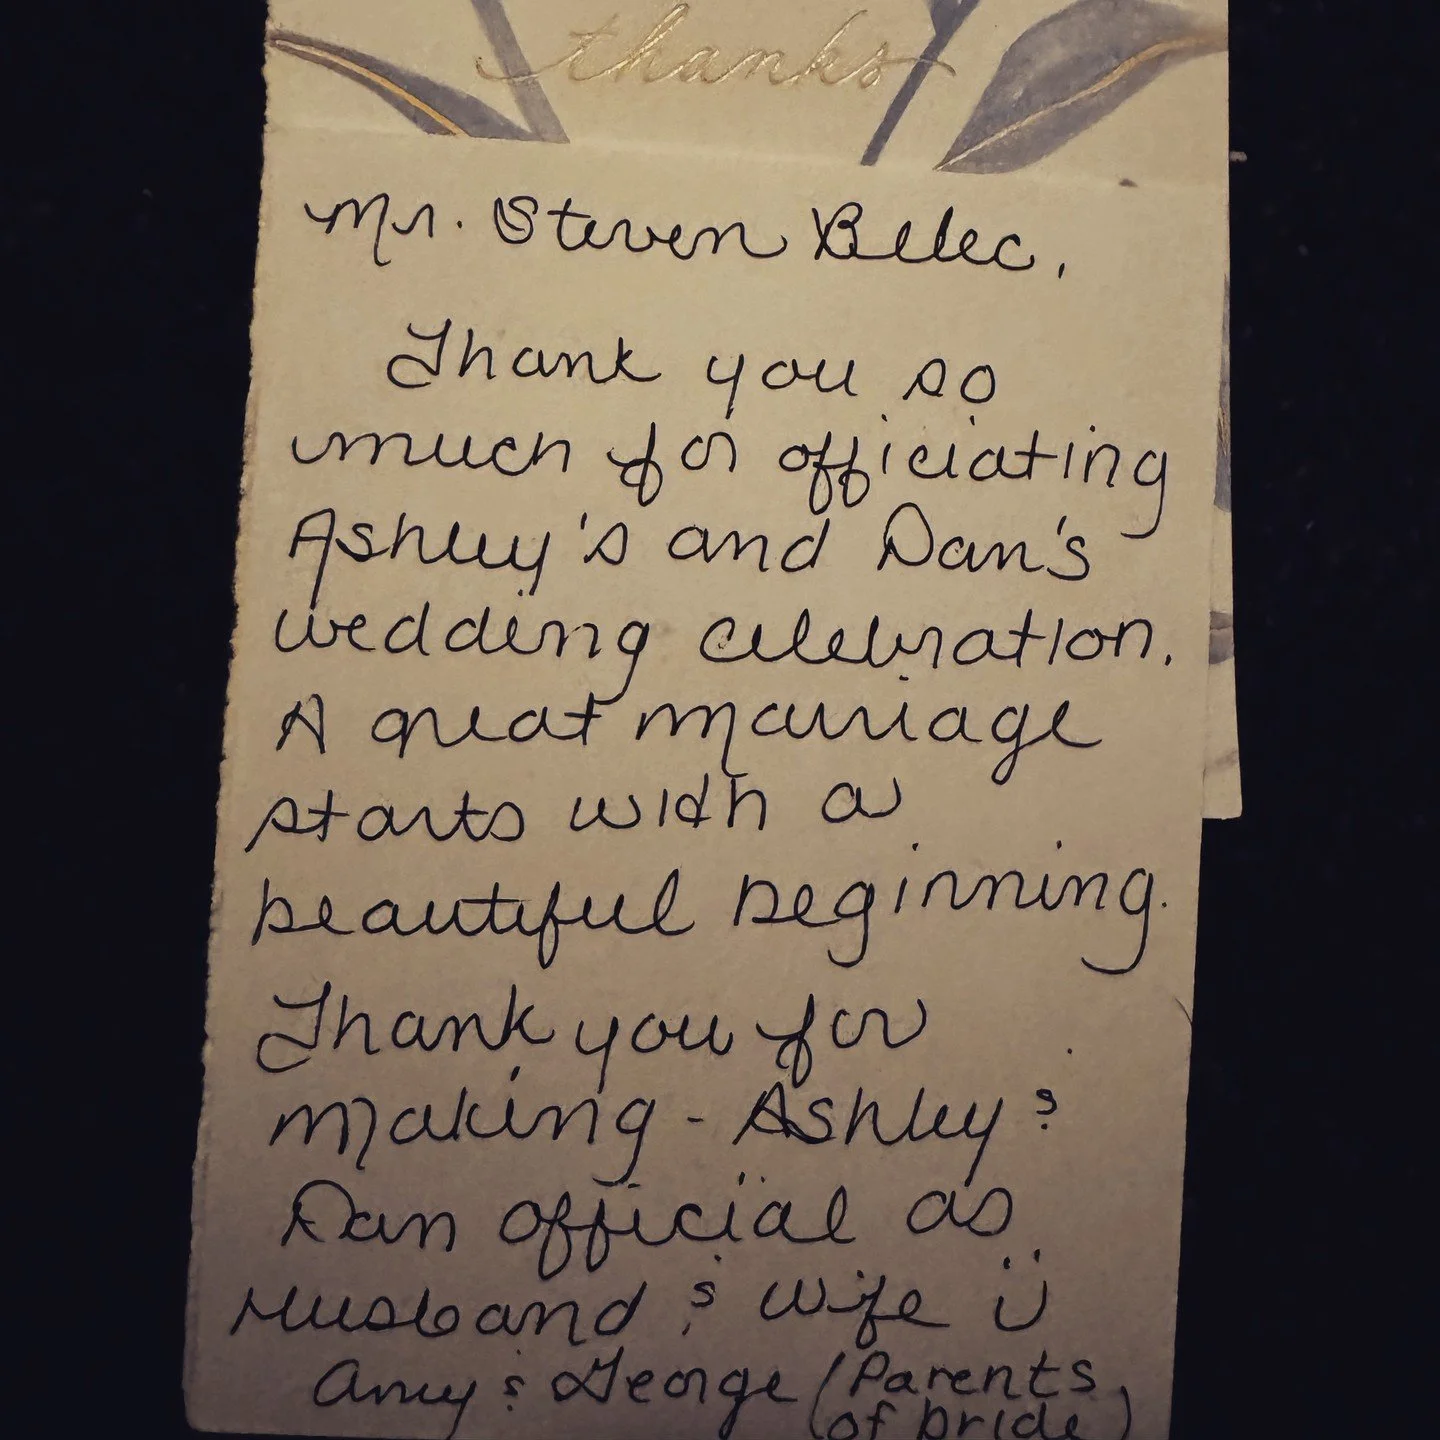 thanks
Mr. Steven Belec,
Thank you so
much for officiating
Ashley's and Dan's
wedding celebration.
A great marriage
starts with a
beautiful beginning.
Thank you for
making - Ashley &
Dan official as
Husband & Wife ü
Amy & George (Parents
of bride)